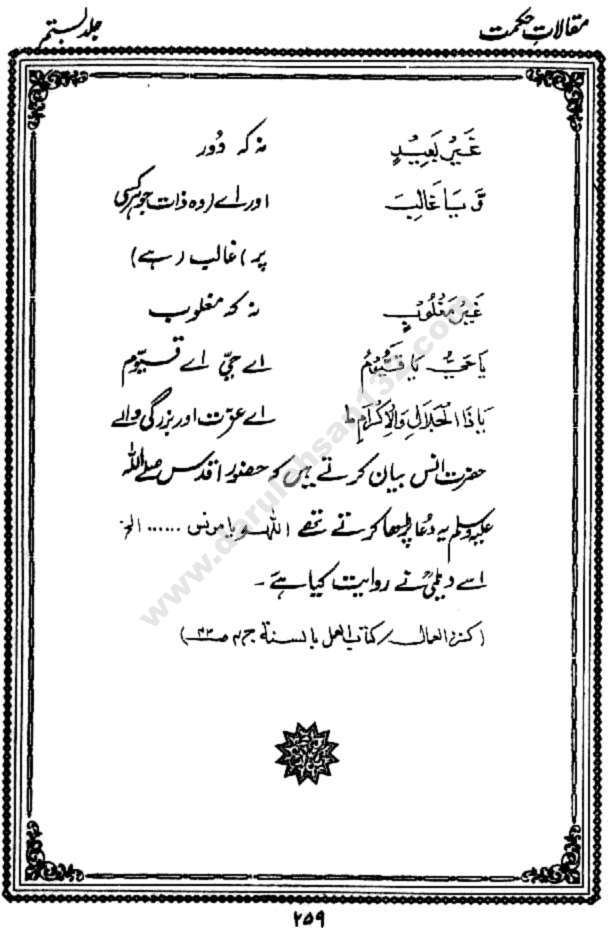 مقالاتِ حکمت جلد بستم
غَيْرُ بَعِيْدٍ نہ کہ دُور
وَ يَا غَالِبَ اور اے (وہ ذات جو ہر کسی
پر) غالب رہے)
غَيْرُ مَغْلُوْبٍ نہ کہ مغلوب
يَا حَيُّ يَا قَيُّوْمُ اے حیّ اے قیّوم
يَا ذَا الْجَلَالِ وَالْاِكْرَامِ ط اے عزّت اور بزرگی والے
حضرت انس بیان کرتے ہیں کہ حضور اقدس صلے اللہ
علیہ وسلم یہ دُعا پڑھا کرتے تھے اللہم یا مونس ...... الخ
اسے دیلمیؒ نے روایت کیا ہے۔
(کنز العمال / کتاب العمل بالسنة
۲۵۹
www.darulehsan132.com